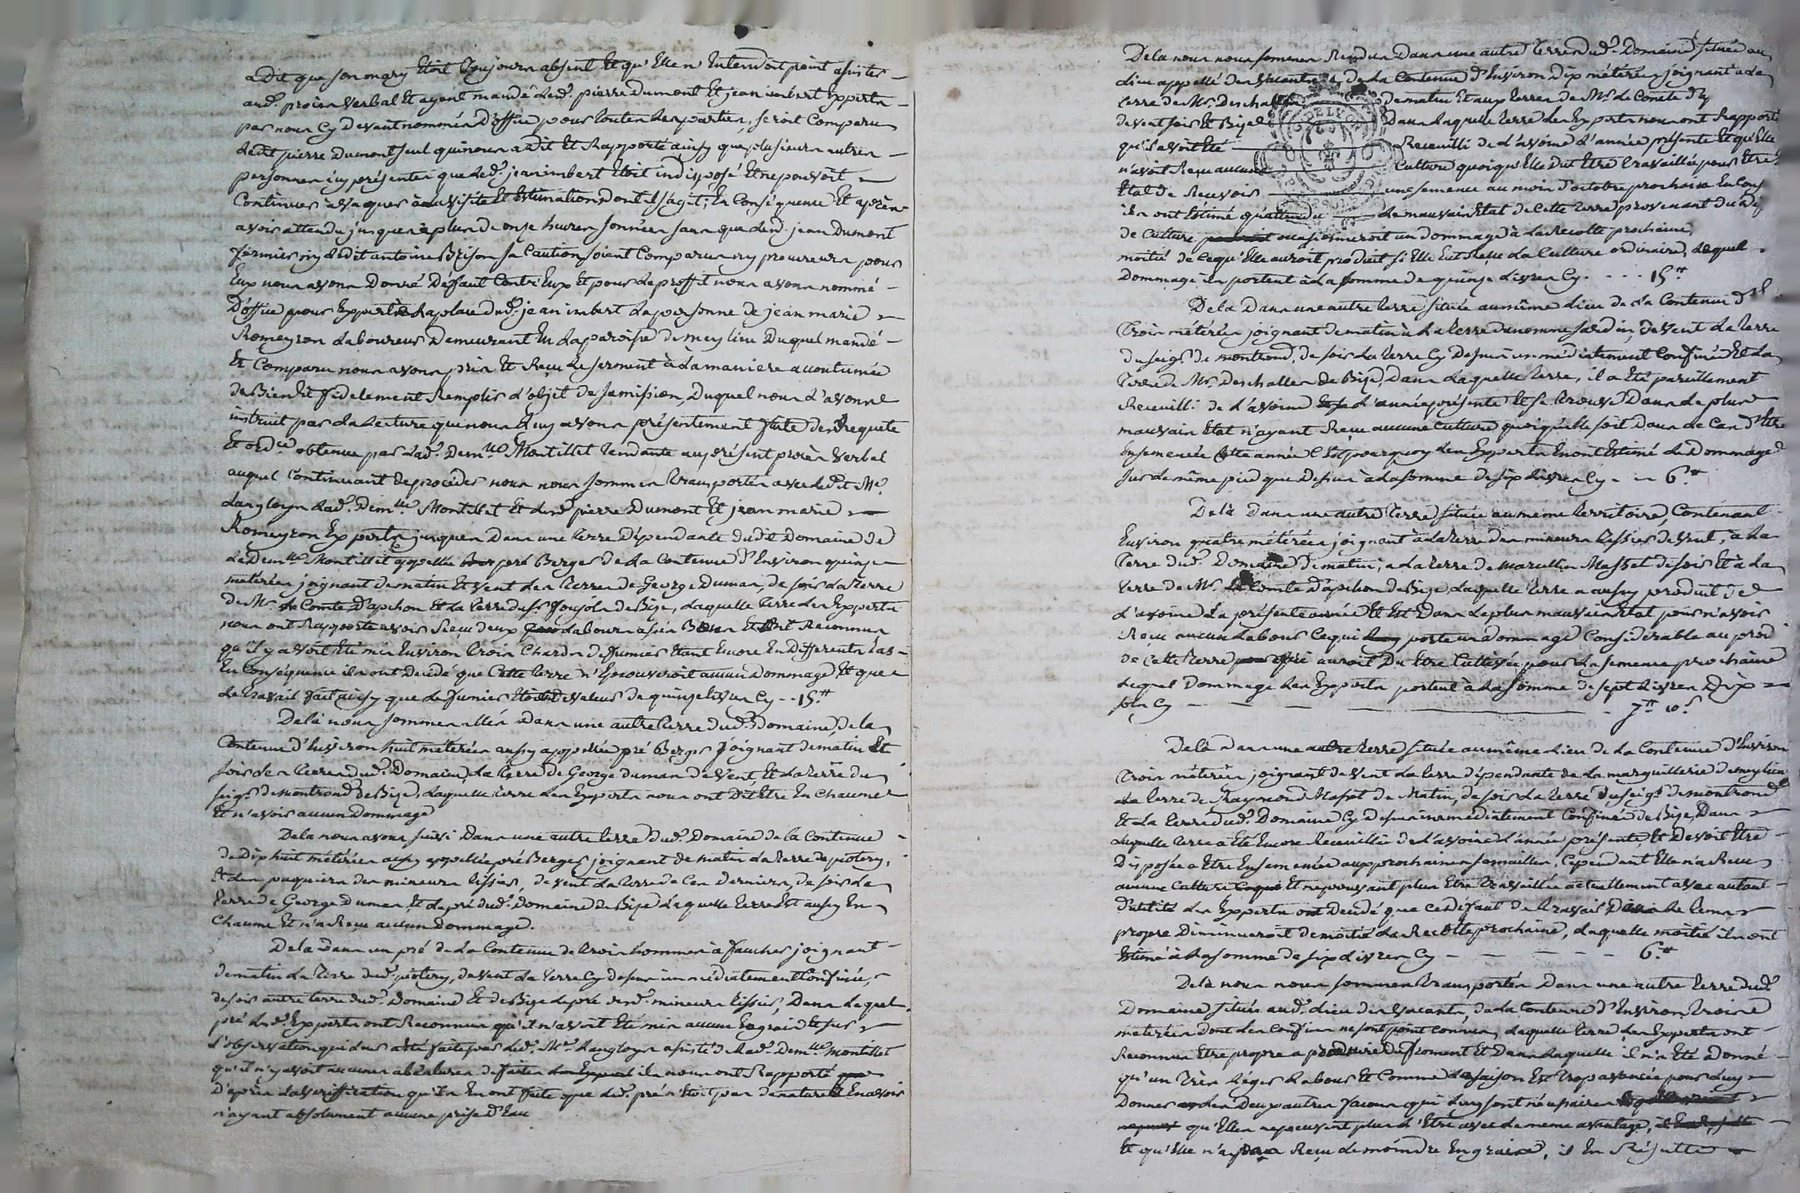 a Dit que son mary Etoit toujours absent Et qu'Elle n'Entendoit point assister
aud. procès verbal Et ayant mandé lesd. pierre Dumont Et jean imbert Experts
par nous Cy devant nommés D'office pour toutes les parties, seroit Comparu
ledit pierre Dumont seul qui nous a dit Et Rapporté ainsy que plusieurs autres
personnes icy présentes que led. jean imbert Etoit indisposé Et ne pouvoit
Continuer a vaquer à la visite Et Estimation dont il s'agit; En Conséquence Et après
avoir attendu jusques à plus de onze heures sonnées sans que led. jean Dumont
fermier ny ledit antoine Brison sa Caution soient Comparus ny procureur pour
Eux nous avons Donné Deffaut Contr'Eux Et pour le proffit nous avons nommé
D'office pour Expert à la place dud. jean imbert la personne de jean marie
Romeyron laboureur Demeurant En la paroisse de meylieu Duquel mandé
Et Comparu nous avons pris Et Reçu le serment à la maniere accoutumée
de Bien Et fidelement Remplir l'objet de sa mission, Duquel nous l'avons
instruit par la lecture que nous luy avons présentement faite des Requete
Et ordce obtenue par lad. Demlle Montillet tendante au présent procès verbal
auquel Continuant de proceder nous nous sommes transportés avec ledit Me
Langloys lad. Demlle Montillet Et lesd. pierre Dumont Et jean marie
Romeyron Experts jusques Dans une terre Dépendante dudit Domaine de
lad. Demlle Montillet appellée pré Berger de la Contenue d'Environ quinze
métérées joignant de matin Et vent les terres de George Dumas, de soir la terre
de Mr le Comte D'apchon Et la terre du sr Goujols de Bize, laquelle terre les Experts
nous ont Rapporté avoir Reçu deux labours à six Boeufs Et ont Reconnu
qu'il y avoit Eté mis Environ trois Chards de fumier Etant Encore En differents tas
En Conséquence ils ont decidé que Cette terre n'Eprouveroit aucun dommage Et que
le travail fait ainsy que le fumier Etoit de valeur de quinze livres Cy -- 15 ₶
De la nous sommes alles Dans une autre terre dud. Domaine, de la
Contenue d'Environ huit métérées aussy appellée pré Berger joignant de matin Et
soir les terres dud. Domaine, la terre de George dumas de vent Et la terre du
seigr de Montrond de Bize, laquelle terre les Experts nous ont Dit Etre En Chaume
Et n'avoir aucun Dommage
De la nous avons suivi Dans une autre terre dud. Domaine de la Contenue
de Dix huit métérées aussy appellée pré Berger joignant de matin la terre de piotery,
Et les paquiers des mineurs tissier, de vent la terre de Ces Derniers, de soir la
terre de George Dumas, Et le pré dud. Domaine de Bize laquelle terre Est aussy En
Chaume Et n'a Reçu aucun Dommage.
De la Dans un pré de la Contenue de trois hommes à faucher joignant
de matin la terre dud. piotery, de vent la terre Cy dessus immédiatement Confinée,
de soir autre terre dud. Domaine Et de Bize le pré desd. mineurs tissier, Dans lequel
pré lesd. Experts ont Reconnu qu'il n'avoit Eté mis aucun Engrais Et sur
l'observation qui leur a été faite par led. Me Langloys assisté de lad. Demlle Montillet
qu'il n'y avoit aucunes abéalures de faites ils nous ont Rapporté
D'après la vérification qu'ils En ont faite que led. pré n'étoit pas de nature à En avoir
n'ayant absolument aucune prise d'Eau
De la nous nous sommes Rendus Dans une autre terre dud. Domaine située au
lieu appellé des vacants, de la Contenue d'Environ Dix métérées joignant a la
terre de Mr Deschalles de matin Et aux terres de Mr le Comte d'
de vent soir Et Bize Dans laquelle terre les Experts nous ont Rapporté
qu'il avoit Eté Receuilli de l'avoine l'année présente Et qu'Elle
n'avoit Reçu aucune Culture quoiqu'Elle dut Etre travaillée pour Etre
Etat de Recevoir une semence au mois d'octobre prochain En Cons.
ils ont Estimé qu'attendu le mauvais Etat de Cette terre provenant du def
de Culture occasionneroit un dommage à la recolte prochaine,
moitié de Ce qu'Elle auroit produit si Elle Eut Reçu la Culture ordinaire, lequel
Dommage ils portent à la somme de quinze livres Cy - - - 15 ₶
De la Dans une autre terre située au même lieu de la Contenue d'E
trois métérées joignant de matin à la terre du nommé jardin, de vent la terre
du seigr de montrond, de soir la terre Cy Dessus immédiatement Confinée Et la
terre de Mr Deschalles de Bize, Dans laquelle terre, il a Eté pareillement
Receuilli de l'avoine l'année présente Et se trouve Dans le plus
mauvais Etat n'ayant Reçu aucune Culture quoiqu'elle soit Dans le Cas d'Etre
Ensemencée Cette année C'Est pourquoy les Experts En ont Estimé le Dommage
sur le même pied que dessus à la somme de six livres Cy - -- 6 ₶
De là Dans une autre terre située au même territoire, Contenant
Environ quatre métérées joignant à la terre des mineurs tissier de vent, à la
terre dud. Domaine de matin, a la terre de Marcellin Masset de soir Et à la
terre de Mr le Comte d'apchon de Bize, laquelle terre a aussy produit de
l'avoine la présente année Et Est Dans le plus mauvais Etat pour n'avoir
Reçu aucun labour Ce qui porte un dommage Considerable au prod
de Cette terre qui auroit Du Etre Cultivée pour la semence prochaine
lequel Dommage les Experts portent à la somme de sept livres Dix
sols Cy - - - - 7 ₶ 10 s
De la dans une autre terre située au même lieu de la Contenue d'Environ
trois métérées joignant de vent la terre dépendante de la marguillerie de meylieu
la terre de Raymond Masset de Matin, de soir la terre du seigr de montrond
Et la terre dud. Domaine Cy dessus immédiatement Confinée de Bize, Dans
laquelle terre a Eté Encore Receuillie de l'avoine l'année présente, Et Devoit Etre
Disposée a Etre Ensemencée aux prochaines semailles, Cependant Elle n'a Reçu
aucune Culture Et ne pouvant plus Etre travaillée actuellement avec autant
D'utilité les Experts ont Decidé que ce défaut de travail Dans le tems
propre Diminueroit de moitié la Recolte prochaine, laquelle moitié ils ont
Estimé à la somme de six livres Cy - - - - - 6 ₶
De là nous nous sommes transportés Dans une autre terre dud.
Domaine située aud. lieu des vacants, de la Contenue d'Environ trois
métérées dont les Confins ne sont point connus, laquelle terre les Experts ont
Reconnu Etre propre a produire du froment Et Dans laquelle il n'a Eté donné
qu'un très léger labour Et Comme la saison Est trop avancée pour luy
Donner les Deux autres façons qui luy sont nécessaires
qu'Elles ne peuvent plus l'Etre avec le meme avantage,
Et qu'Elle n'a pas Reçu le moindre Engrais, il En Résulte